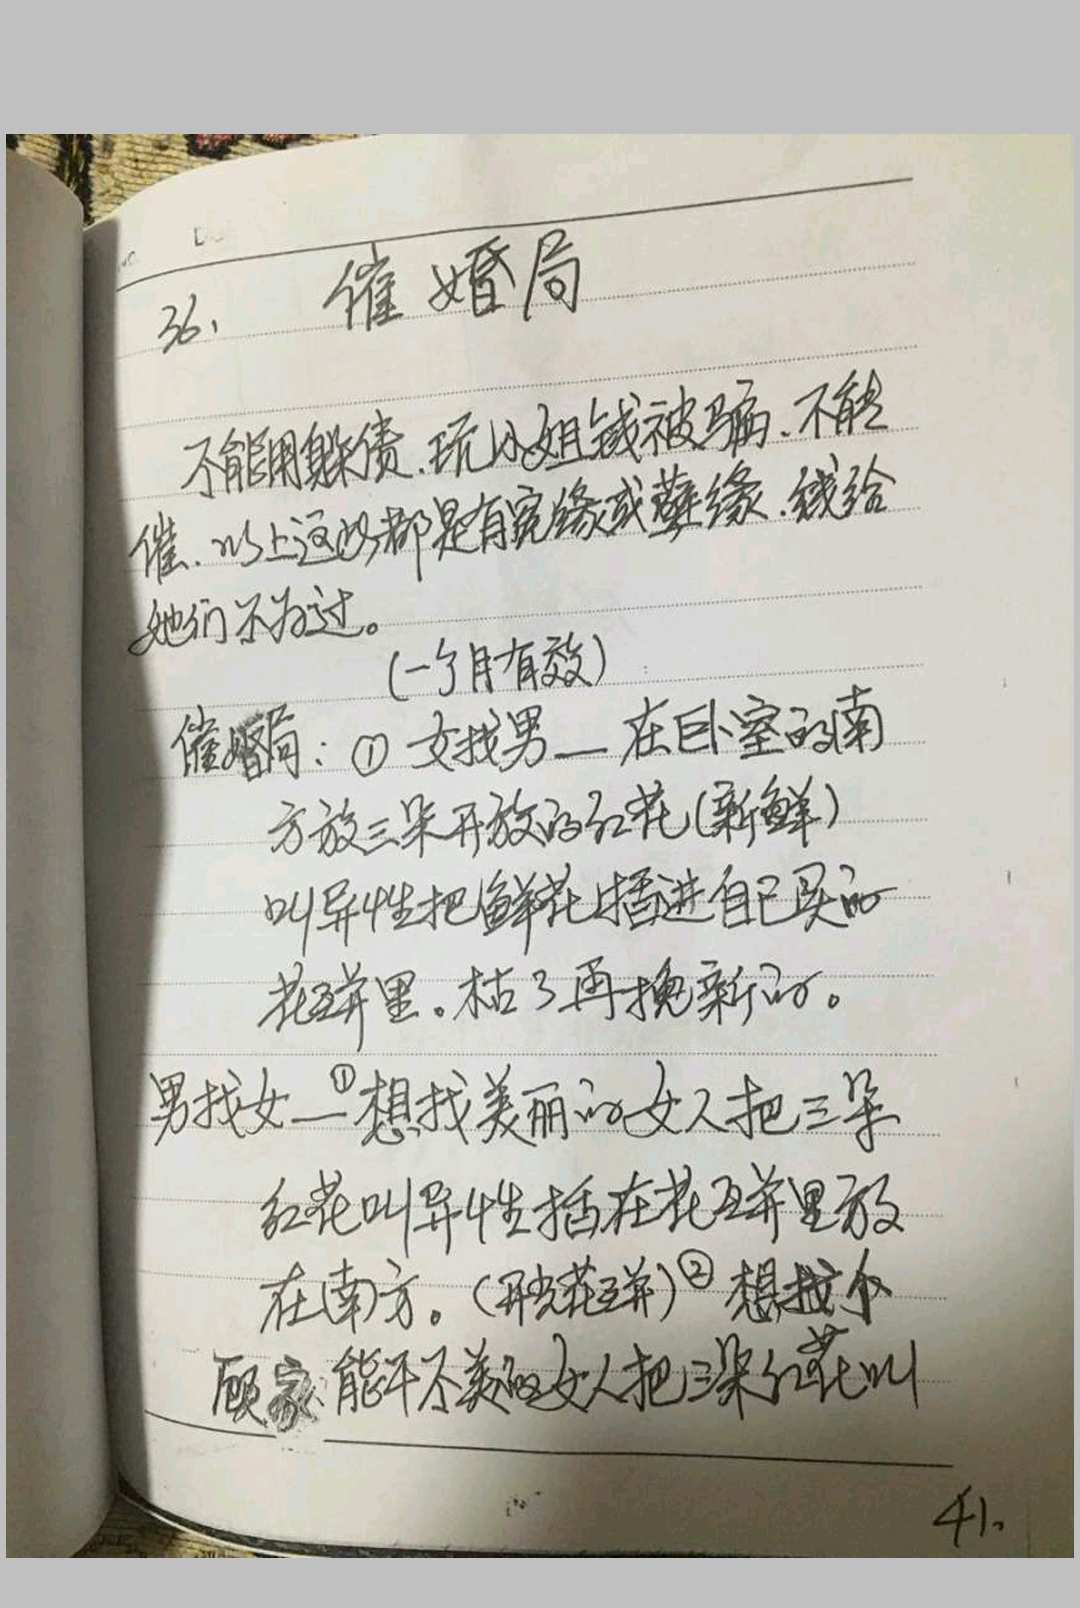 36、 催婚局
不能用躲债、玩小姐钱被骗、不能
催、以上这些都是有冤缘或孽缘、钱给
她们不为过。
(一个月有效)
催婚局：① 女找男— 在卧室的南
方放三朵开放的红花(新鲜)
叫异性把鲜花插进自己买的
花瓶里。枯了再换新的。
男找女—①想找美丽的女人把三朵
红花叫异性插在花瓶里放
在南方。(开光花瓶)②想找个
顾家能干不美的女人把三朵红花叫
41.